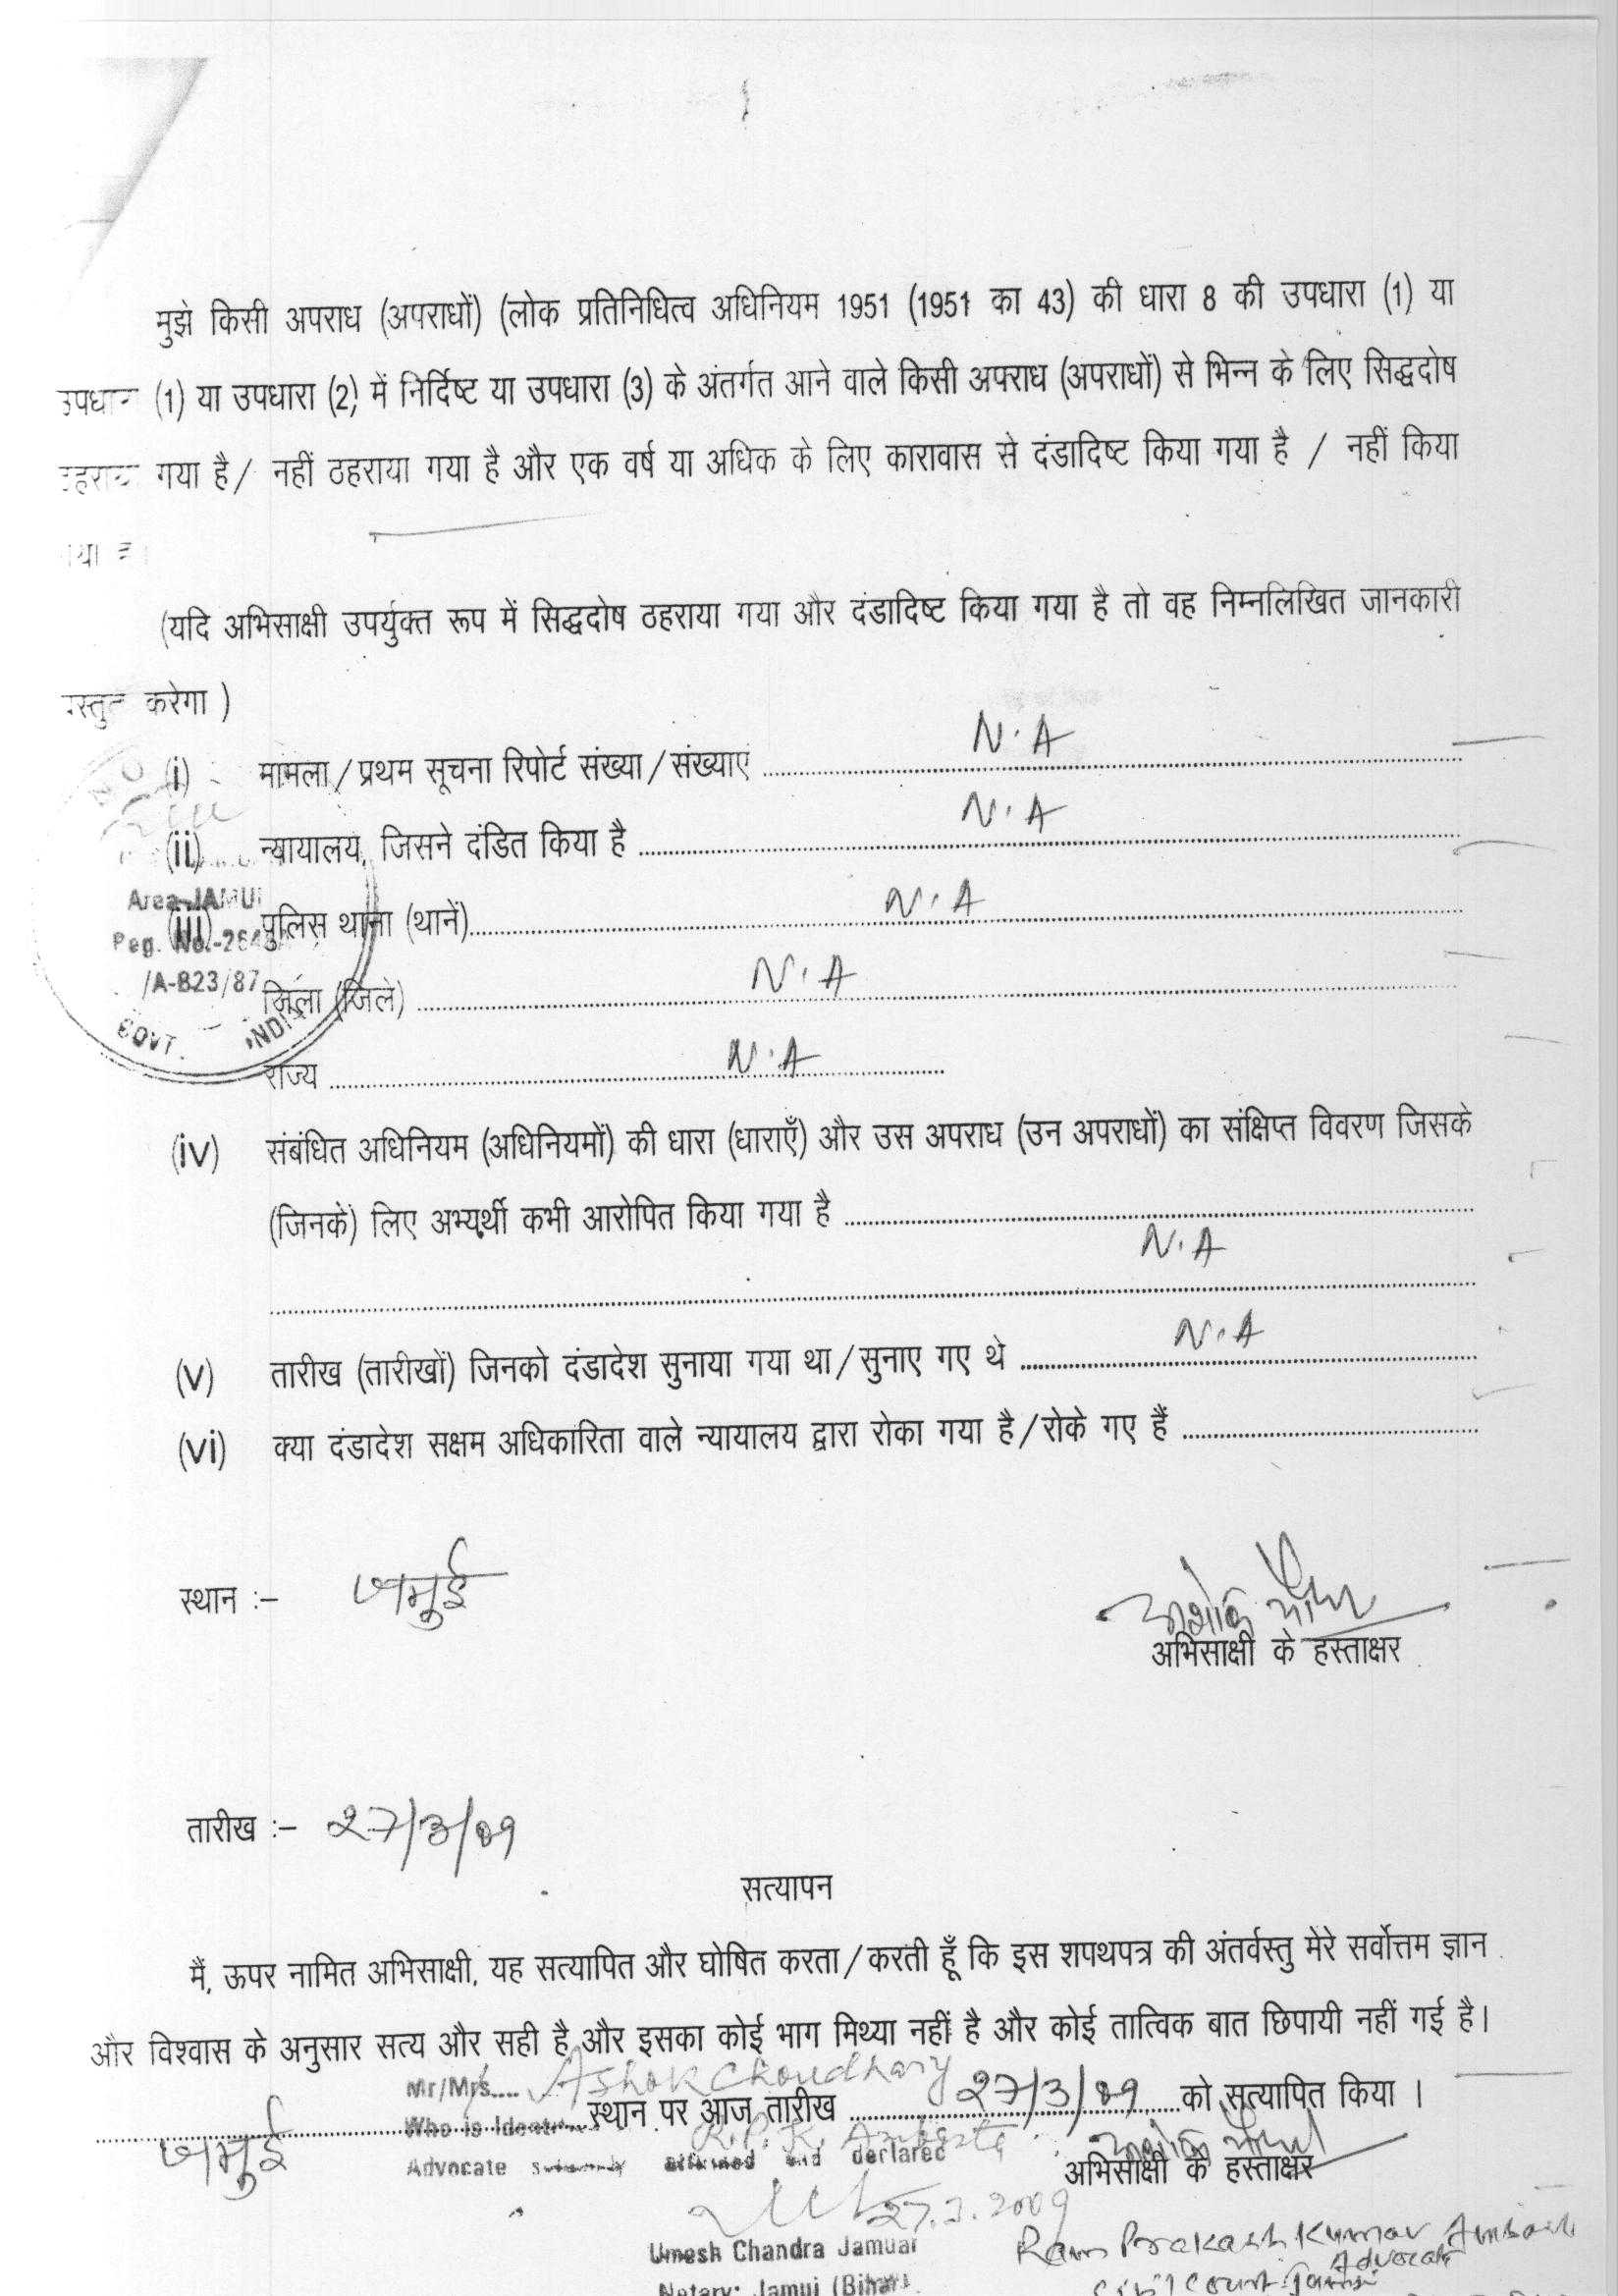 मुझे किसी अपराध (अपराधों) (लोक प्रतिनिधित्व अधिनियम 1951 (1951 का 43) की धारा 8 की उपधारा (1) या
उपधारा (1) या उपधारा (2) में निर्दिष्ट या उपधारा (3) के अंतर्गत आने वाले किसी अपराध (अपराधों) से भिन्न के लिए सिद्धदोष
ठहराया गया है/ नहीं ठहराया गया है और एक वर्ष या अधिक के लिए कारावास से दंडादिष्ट किया गया है / नहीं किया
गया है।
(यदि अभिसाक्षी उपर्युक्त रूप में सिद्धदोष ठहराया गया और दंडादिष्ट किया गया है तो वह निम्नलिखित जानकारी
प्रस्तुत करेगा )
(i) मामला/प्रथम सूचना रिपोर्ट संख्या/संख्याएं N.A
(ii) न्यायालय, जिसने दंडित किया है N.A
(iii) पुलिस थाना (थानें) N.A
जिला (जिले) N.A
राज्य N.A
Area-JAMUI
/A-B23/87
GOVT. INDIA
(iv) संबंधित अधिनियम (अधिनियमों) की धारा (धाराएँ) और उस अपराध (उन अपराधों) का संक्षिप्त विवरण जिसके
(जिनके) लिए अभ्यर्थी कभी आरोपित किया गया है
N.A
(v) तारीख (तारीखों) जिनको दंडादेश सुनाया गया था/सुनाए गए थे N.A
(vi) क्या दंडादेश सक्षम अधिकारिता वाले न्यायालय द्वारा रोका गया है/रोके गए हैं
स्थान :– जमुई
अभिसाक्षी के हस्ताक्षर
तारीख :– 27/3/09
सत्यापन
मैं, ऊपर नामित अभिसाक्षी, यह सत्यापित और घोषित करता/करती हूँ कि इस शपथपत्र की अंतर्वस्तु मेरे सर्वोत्तम ज्ञान
और विश्वास के अनुसार सत्य और सही है और इसका कोई भाग मिथ्या नहीं है और कोई तात्विक बात छिपायी नहीं गई है।
Mr/Mrs.... Ashok Choudhary
स्थान पर आज तारीख 27/3/09 को सत्यापित किया ।
जमुई
Who is R.P.K.
Advocate and declared
अभिसाक्षी के हस्ताक्षर
27.3.2009
Umesh Chandra Jamuar
Notary: Jamui (Bihar)
Ram Prakash Kumar
Advocate
Civil Court Jamui